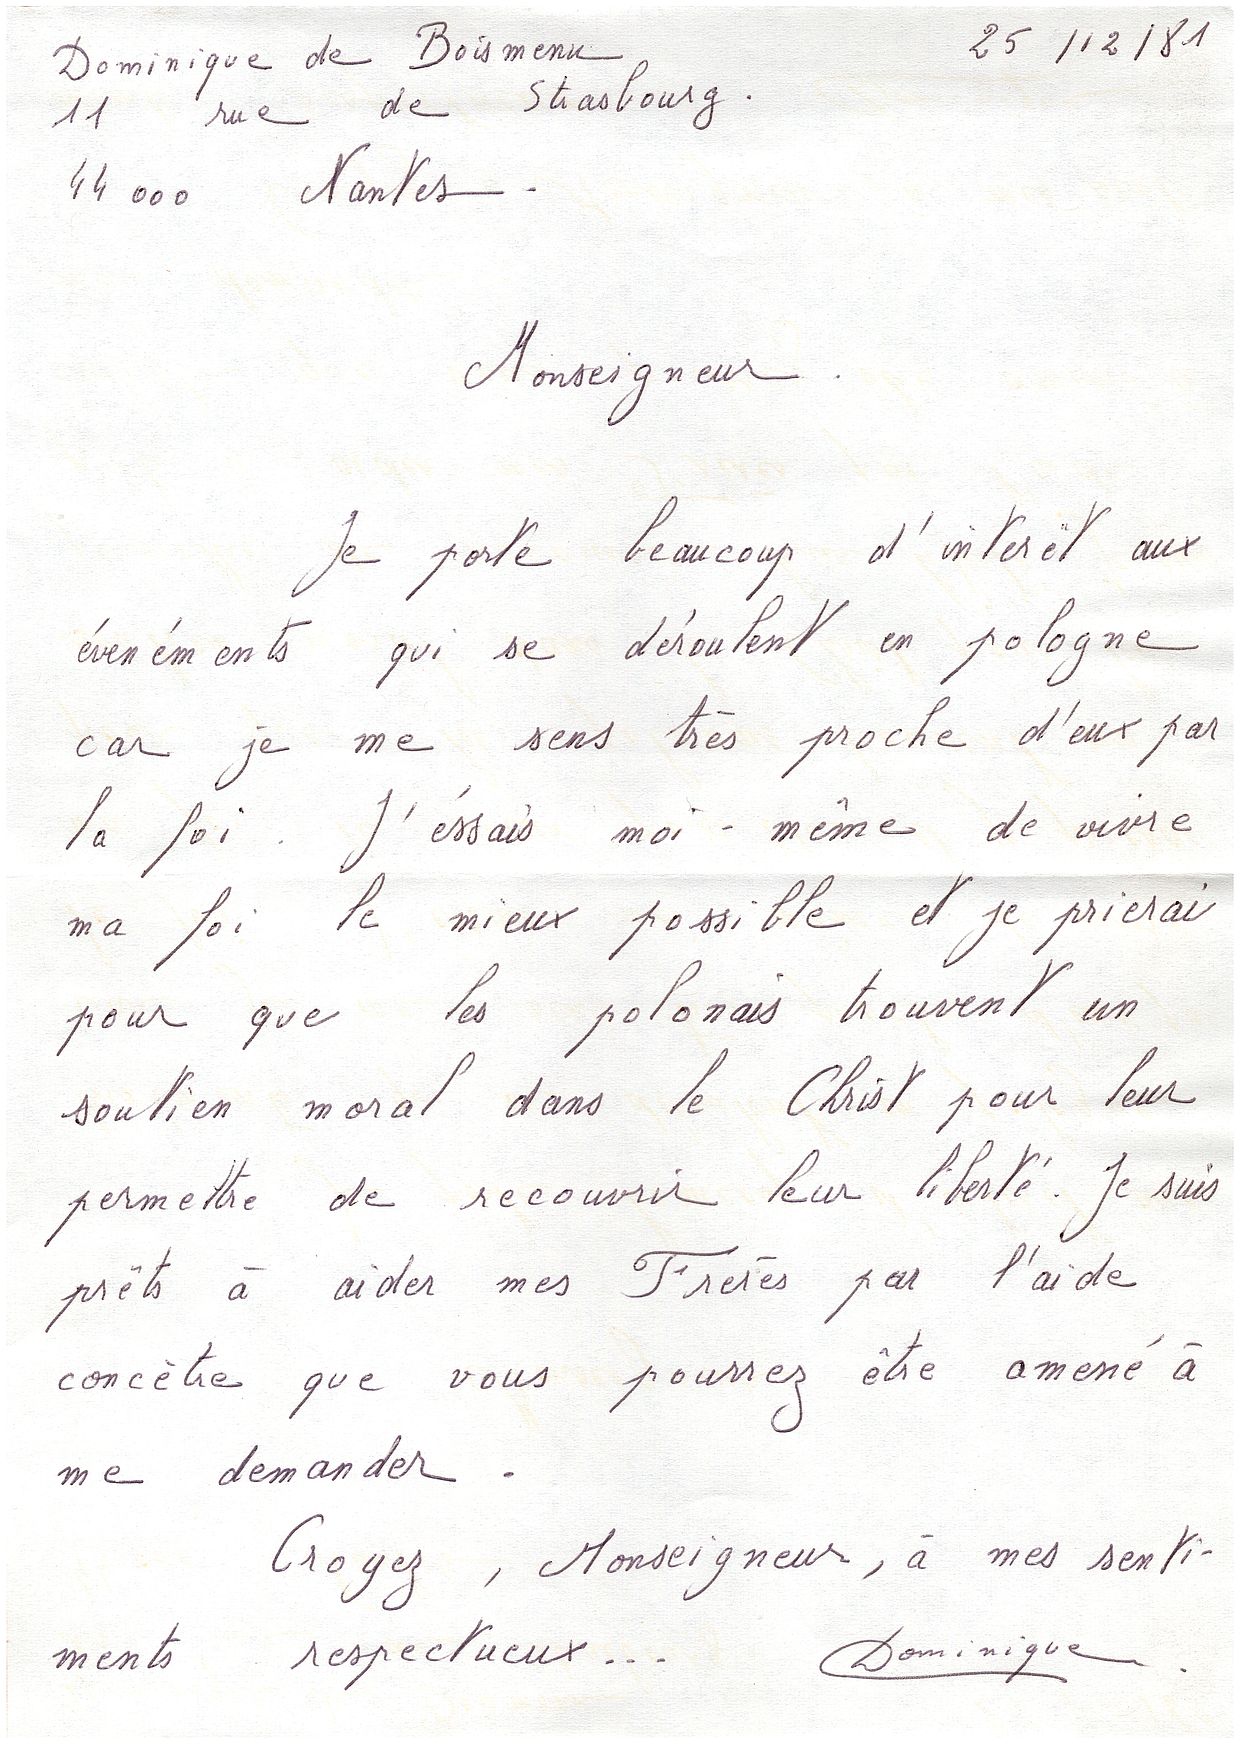 Dominique de Boismenu 25/12/81
11 rue de Strasbourg.
44 000 Nantes.
Monseigneur.
Je porte beaucoup d'intérêt aux
événéments qui se déroulent en pologne
car je me sens très proche d'eux par
la foi. J'éssais moi-même de vivre
ma foi le mieux possible et je prierai
pour que les polonais trouvent un
soutien moral dans le Christ pour leur
permettre de recouvrir leur liberté. Je suis
prêts à aider mes Frerès par l'aide
concètre que vous pourrez être amené à
me demander.
Croyez, Monseigneur, à mes senti-
ments respectueux... Dominique.